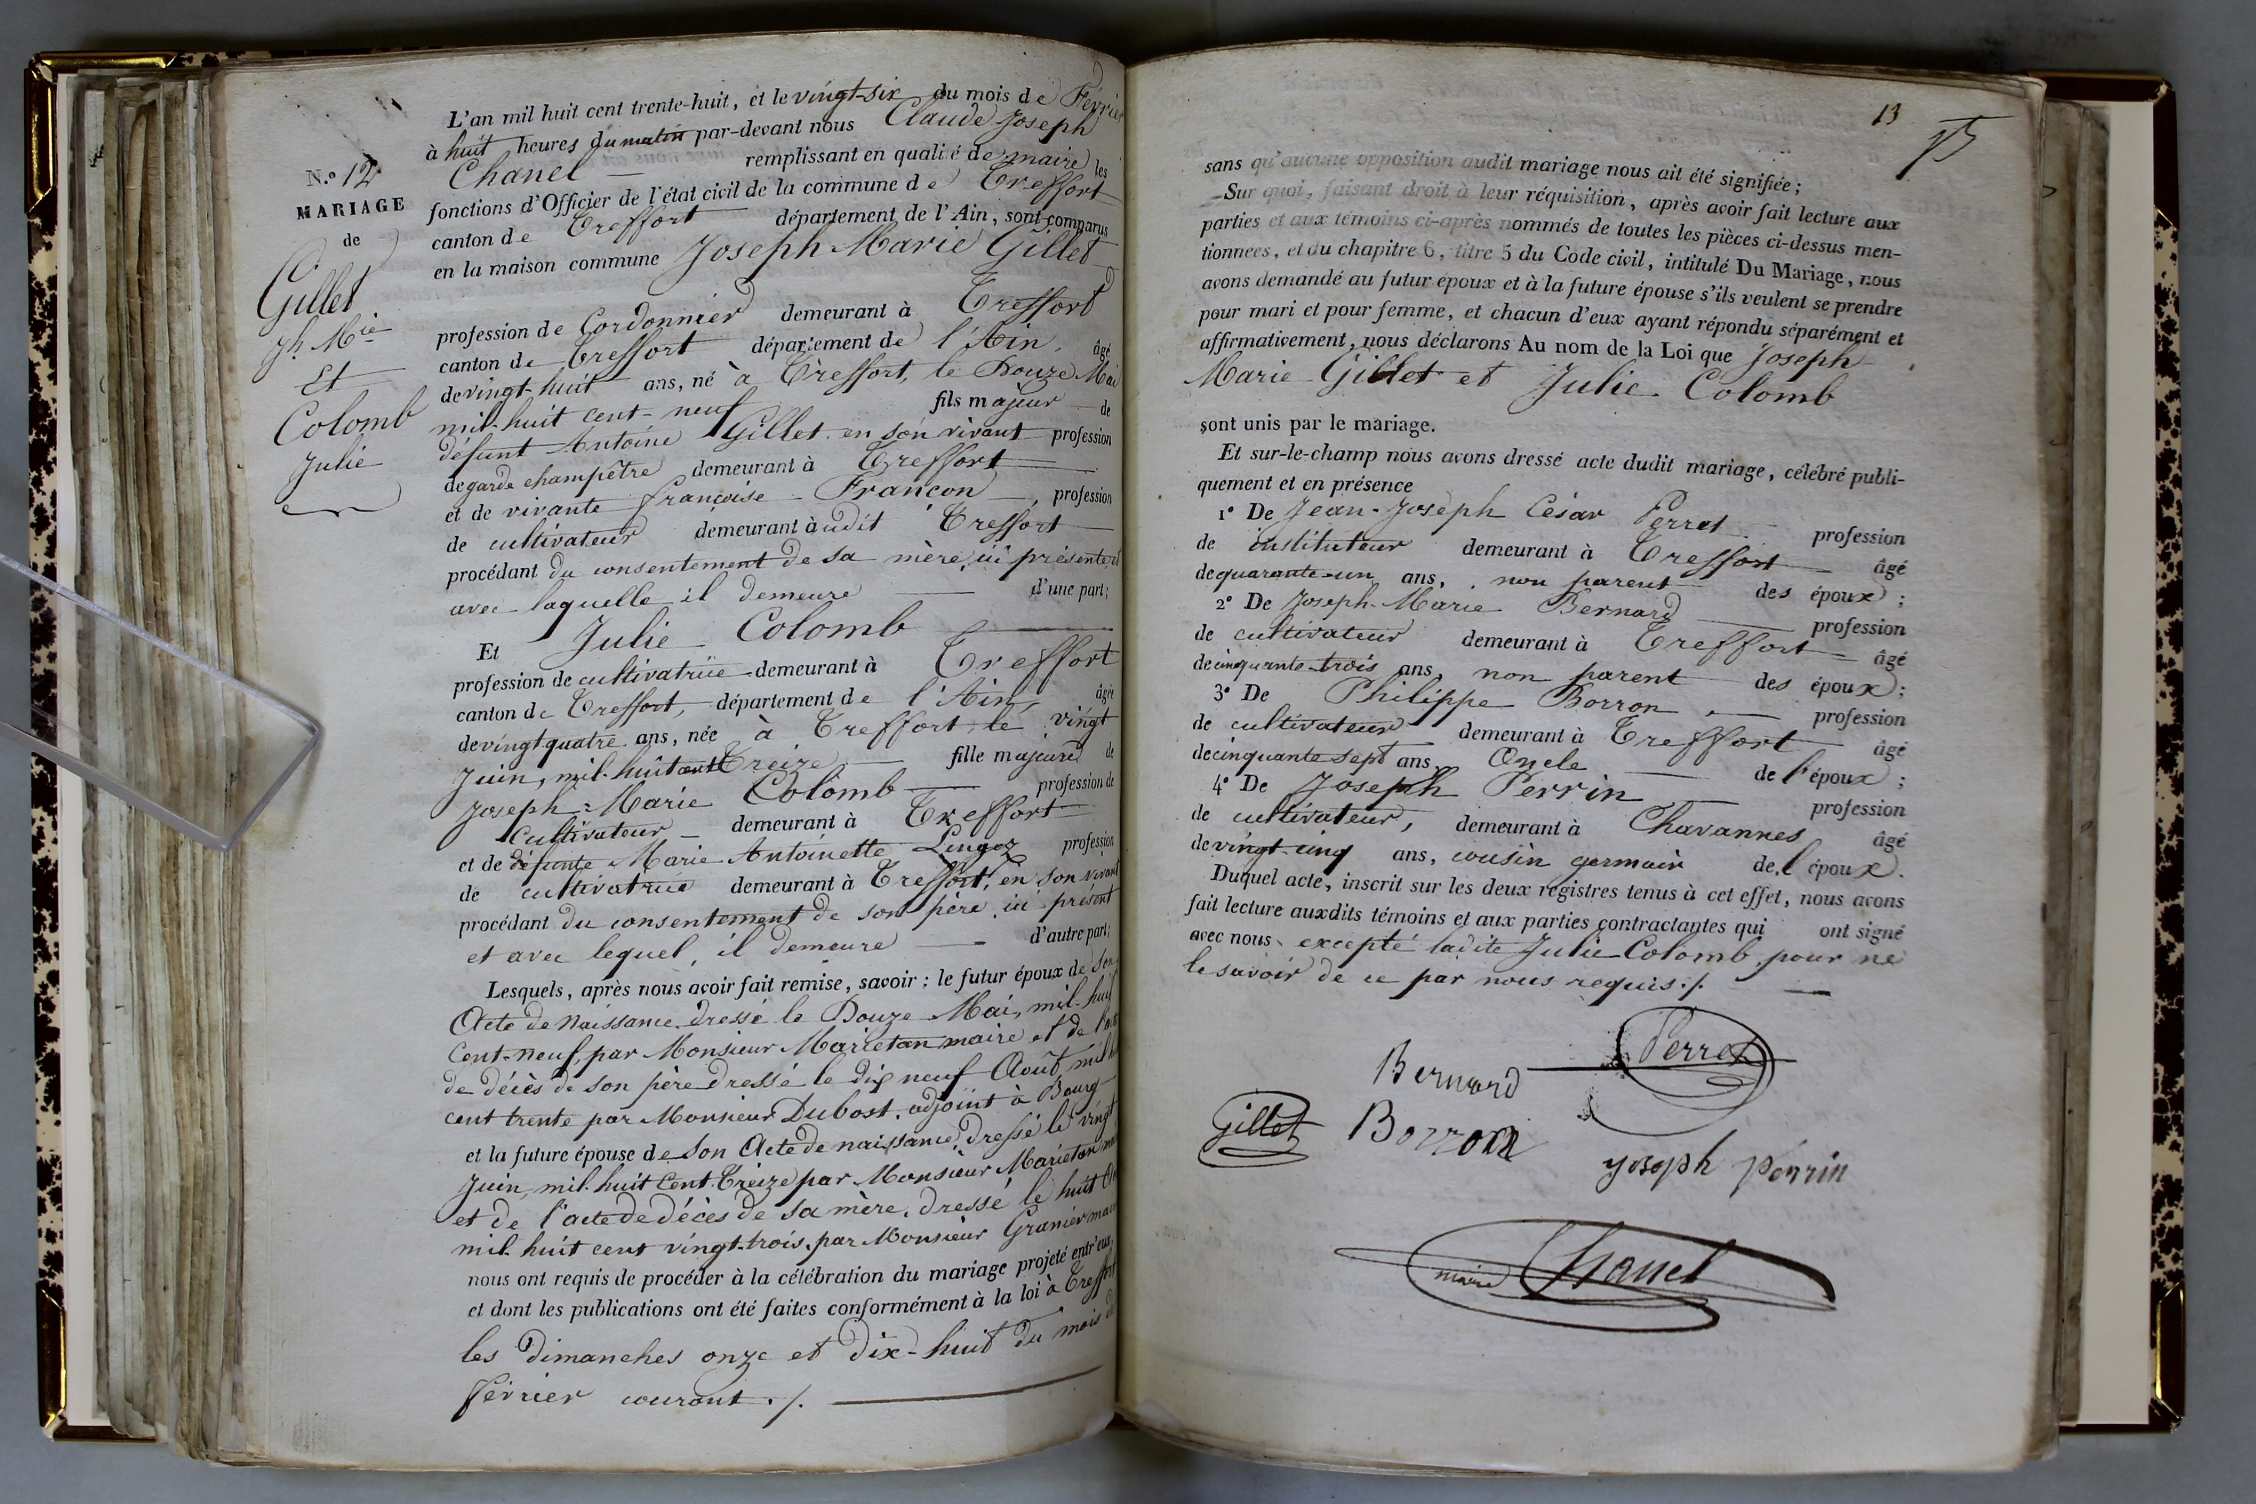 N.º 12
MARIAGE
de
Gillet
Jh. Mie
Et
Colomb
Julie
L'an mil huit cent trente-huit, et le vingt-six du mois de Février
à huit heures du matin par-devant nous Claude Joseph
Chanel remplissant en qualité de maire les
fonctions d'Officier de l'état civil de la commune de Treffort
canton de Treffort département de l'Ain, sont comparus
en la maison commune Joseph Marie Gillet
profession de Cordonnier demeurant à Treffort
canton de Treffort département de l'Ain, âgé
de vingt-huit ans, né à Treffort, le Douze Mai
mil-huit cent-neuf fils majeur de
défunt Antoine Gillet en son vivant profession
de garde champêtre demeurant à Treffort
et de vivante françoise Francon, profession
de cultivateur demeurant audit Treffort
procédant du consentement de sa mère, ici présente et
avec laquelle il demeure d'une part;
Et Julie Colomb
profession de cultivatrice demeurant à Treffort
canton de Treffort, département de l'Ain, âgée
de vingt quatre ans, née à Treffort, le vingt
Juin, mil-huit cent Treize fille majeure de
Joseph-Marie Colomb profession de
Cultivateur demeurant à Treffort
et de défunte Marie Antoinette Lingoz profession
de cultivatrice demeurant à Treffort, en son vivant
procédant du consentement de son père ici présent
et avec lequel, il demeure d'autre part;
Lesquels, après nous avoir fait remise, savoir: le futur époux de son
Acte de Naissance dressé le Douze Mai, mil-huit
Cent-neuf, par Monsieur Marietan maire et de l'acte
de décès de son père dressé le dix neuf Août mil
cent trente par Monsieur Dubost, adjoint à Bourg
et la future épouse de son Acte de naissance, dressé le vingt
Juin, mil-huit Cent-Treize par Monsieur Marietan
et de l'acte de décès de sa mère, dressé le huit
mil huit cent vingt-trois, par Monsieur Granier maire
nous ont requis de procéder à la célébration du mariage projeté entr'eux,
et dont les publications ont été faites conformément à la loi à Treffort
les dimanches onze et dix-huit du mois de
février courant ./.
13
sans qu'aucune opposition audit mariage nous ait été signifiée;
Sur quoi, faisant droit à leur réquisition, après avoir fait lecture aux
parties et aux témoins ci-après nommés de toutes les pièces ci-dessus men-
tionnées, et du chapitre 6, titre 5 du Code civil, intitulé Du Mariage, nous
avons demandé au futur époux et à la future épouse s'ils veulent se prendre
pour mari et pour femme, et chacun d'eux ayant répondu séparément et
affirmativement, nous déclarons Au nom de la Loi que Joseph
Marie Gillet et Julie Colomb
sont unis par le mariage.
Et sur-le-champ nous avons dressé acte dudit mariage, célébré publi-
quement et en présence
1º De Jean-Joseph César Perret profession
de instituteur demeurant à Treffort âgé
de quarante-un ans, non parent des époux;
2º De Joseph-Marie Bernard profession
de cultivateur demeurant à Treffort âgé
de cinquante-trois ans, non parent des époux;
3º De Philippe Borron profession
de cultivateur demeurant à Treffort âgé
de cinquante sept ans, Oncle de l'époux;
4º De Joseph Perrin profession
de cultivateur, demeurant à Chavannes âgé
de vingt-cinq ans, cousin germain de l'époux.
Duquel acte, inscrit sur les deux registres tenus à cet effet, nous avons
fait lecture auxdits témoins et aux parties contractantes qui ont signé
avec nous, excepté ladite Julie Colomb, pour ne
le savoir de ce par nous requis ./.
Perret
Bernard
Gillet Borron
Joseph Perrin
maire Chanel